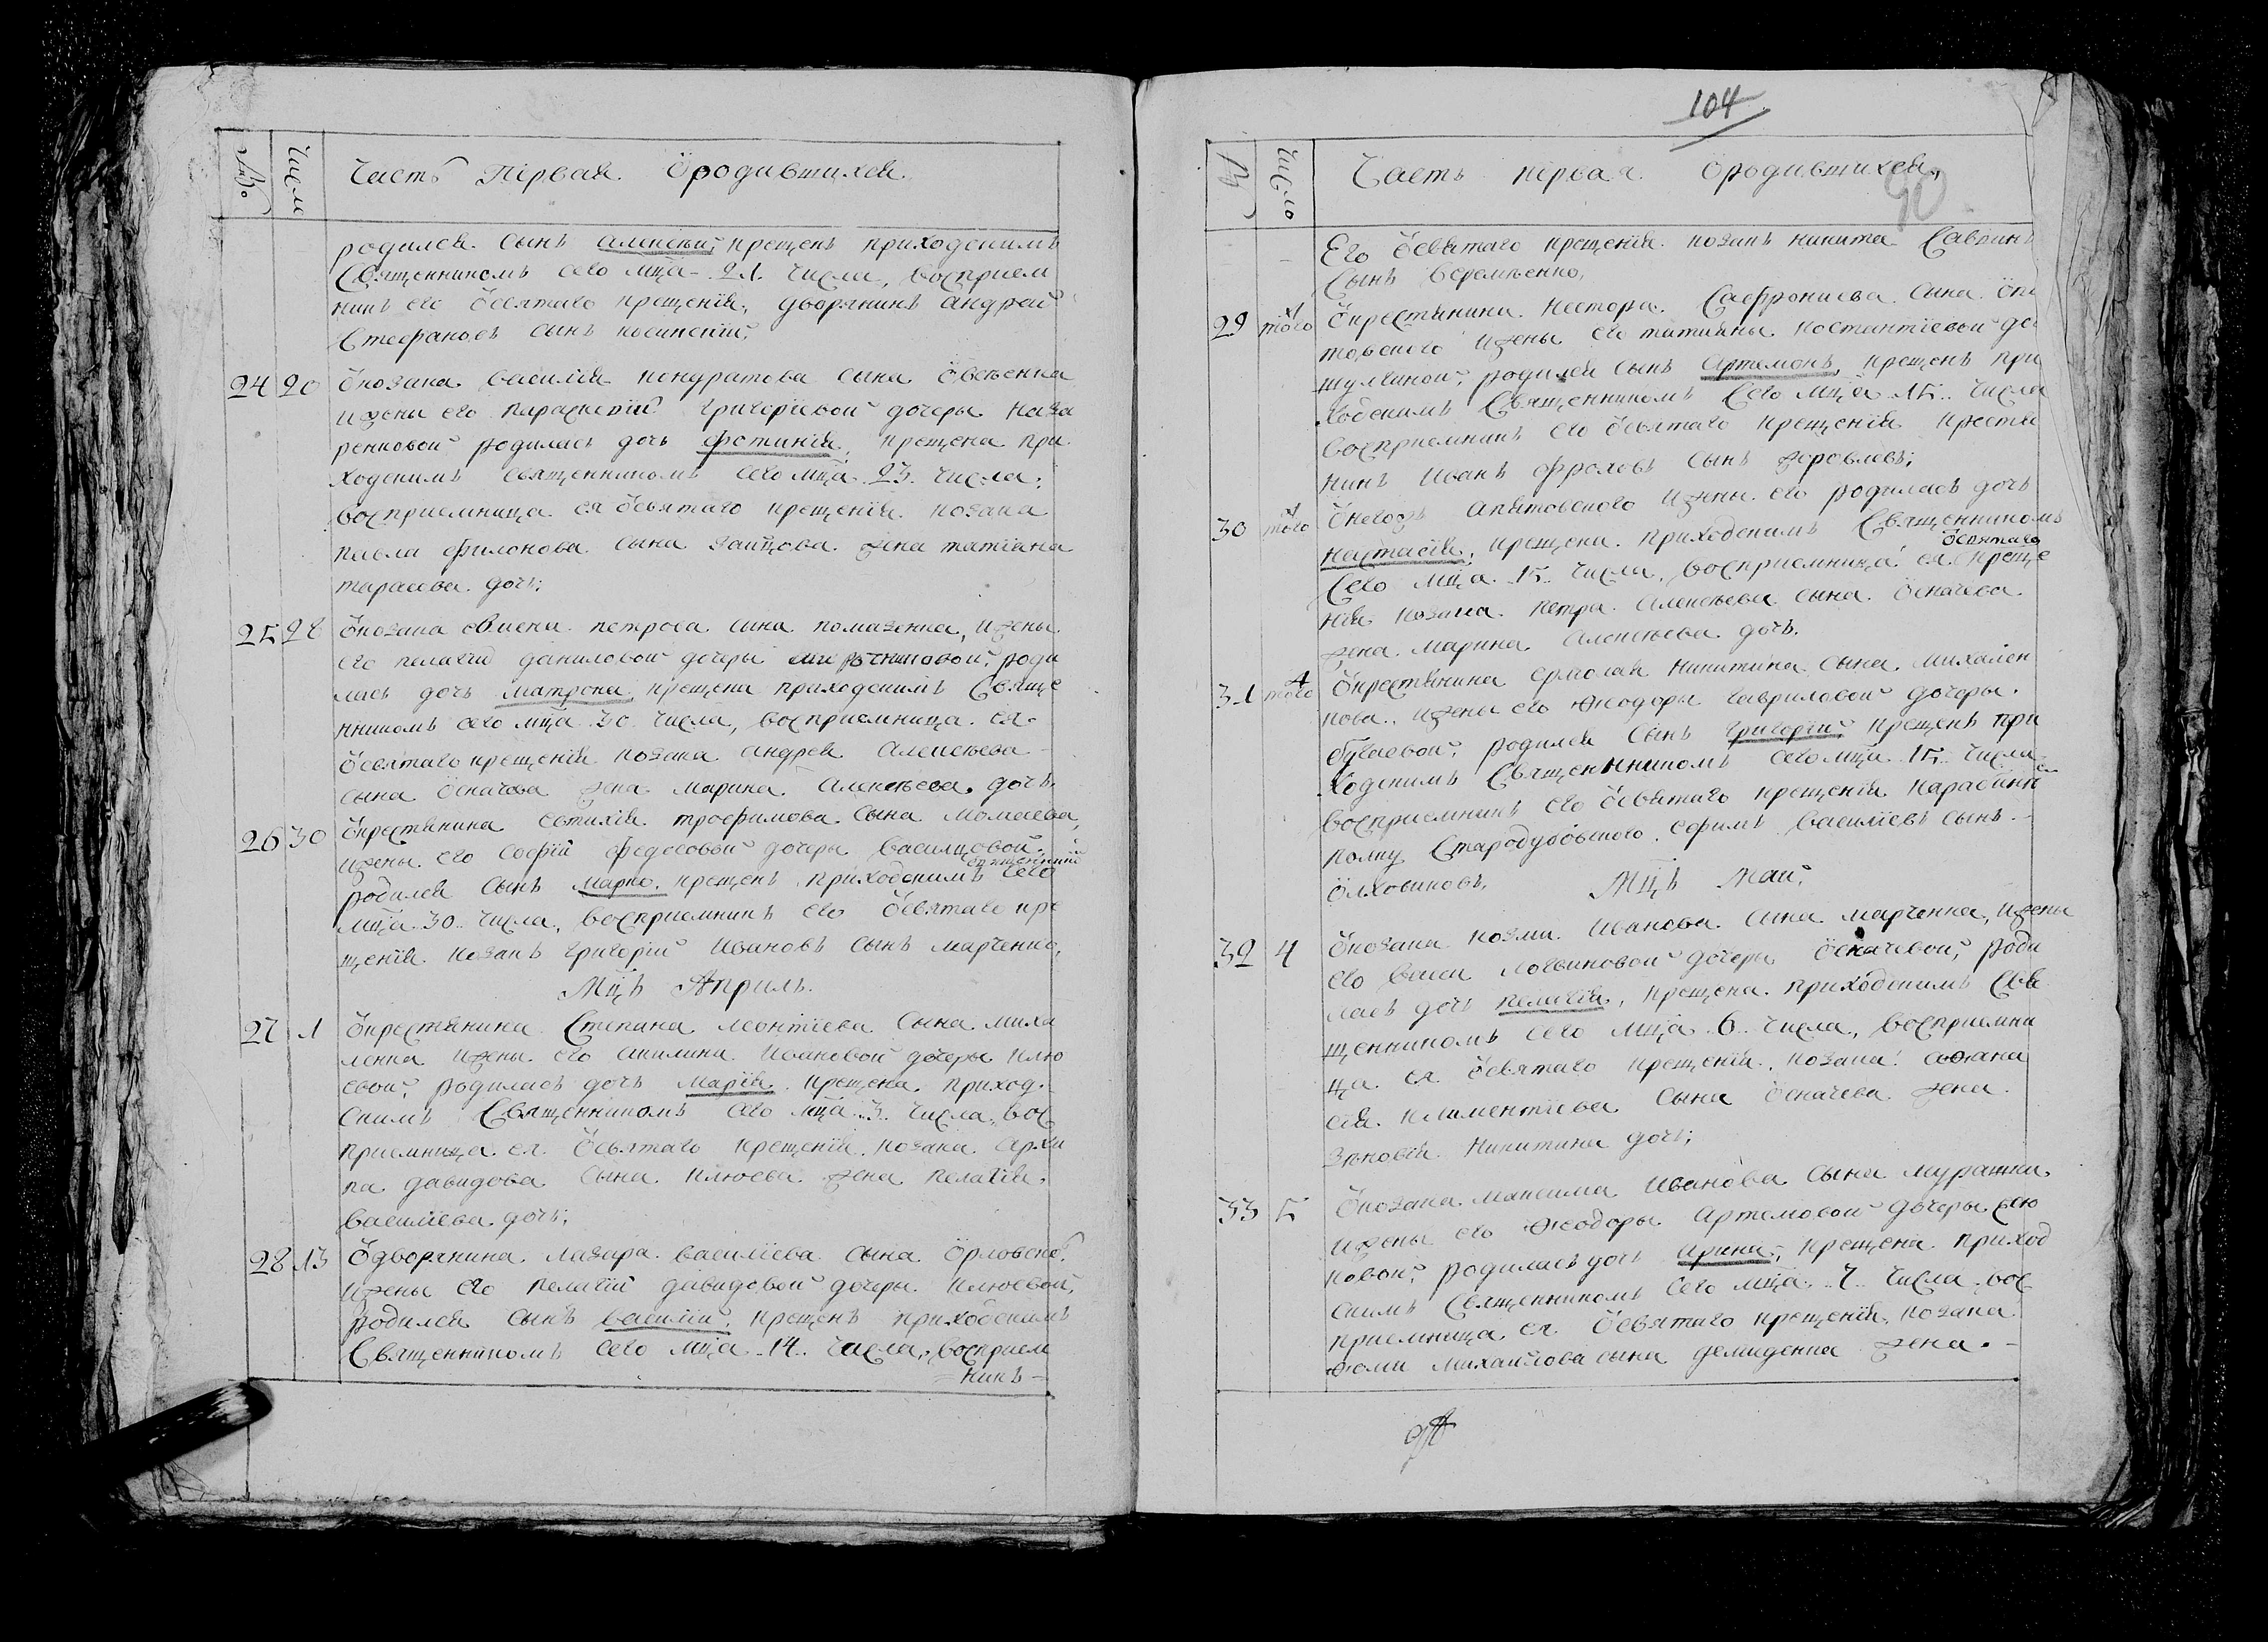 № Число Часть первая ѽродившихся.
родился сынъ алексѣй, крещенъ приходскимъ
Священникомъ сего мца 21 числа, восприем
никъ его ѽсвятаго крещенія, дворянинъ андрей
Стефановъ сынъ косинскій;
24 20 ѽкозака василія кондратова сына ѽвсѣенка
ижены его параскевіи григоріевой дочеры наза
ренковой родилась дочь фотинія, крещена при
ходскимъ священникомъ сего мца 23 числа;
восприемница ея ѽсвятаго крещенія козака
павла филонова сына зайцова жена татіана
тарасова дочь;
25 28 ѽкозака петрова сина помазенка, ижены
его пелагіи даниловой дочеры роди
лась дочь матрона, крещена приходскимъ Свяще
нникомъ сего мца 30 числа, восприемница ея
ѽсвятаго крещенія козака андрея алексѣева
сына ѽсначова жена марина алексѣева дочь.
26 30 ѽкрестянина евтихія трофимова сына момсеева,
ижены его софіи федосовой дочеры василцовой;
родился сынъ марко, крещенъ приходскимъ священникомъ сего
мца 30 числа, восприемникъ его ѽсвятаго кре
щенія козакъ григорій ивановъ сынъ марченко,
Мцъ Априль.
27 1 ѽкрестянина Степана леонтіева сына миха
ленка ижены его акилина ивановой дочеры клю
евой, родилась дочь марія, крещена приход
скимъ Священникомъ сего мца 3 числа, вос
приемница ея ѽсвятаго крещенія козака архи
па давидова сына клюева жена пелагія
василіева дочь;
28 13 ѽдворянина лазара василіева сына ѽрловско
ижены его пелагіи давидовой дочеры клюевой,
родился сынъ василій, крещенъ приходскимъ
Священникомъ сего мца 14 числа, восприем
никъ
104
90
№ Число Часть первая ѽродившихся,
Его ѽсвятаго крещенія козакъ никита Савринъ
Сынъ веремѣенко,
29 того ѽкрестянина нестора Сафрониева сына
товского ижены его татияны костантіевой до
шулгиной, родился сынъ артемонъ, крещенъ при
ходскимъ Священникомъ Сего мца 15 числа
восприемникъ его ѽсвятаго крещенія крестя
нинъ иванъ фроловъ сынъ
30 того ѽнегожъ апятовского ижены его родилась дочь
настасія, крещена приходскимъ Священникомъ
Сего мца 15 числа, восприемница ея ѽсвятаго креще
нія козака петра алексѣева сына ѽсначева
жена марина алексѣева дочь.
31 того ѽкрестянина ермолая никитина сына михален
кова ижены его ѳеодоры гавриловой дочеры
бугаевой, родился сынъ григорій, крещенъ при
ходскимъ Священникомъ сего мца 15 числа
восприемникъ его ѽсвятаго крещенія карабинѣ
полку Стародубовского ефимъ василіевъ сынъ
ѽлховиковъ. Мцъ Май,
32 4 ѽкозака козми иванова сина марченка, ижены
его васи логвиновой дочеры ѽсначевой, роди
лась дочь пелагія, крещена приходскимъ Свя
щенникомъ сего мца 6 числа, восприемни
ца ея ѽсвятаго крещенія, козака афана
сія климентіева сына ѽсначева жена
зѣновія никитина дочь;
33 5 ѽкозака максима иванова сына мурашки
ижены его ѳеодоры артемовой дочеры
ковой, родилась дочь ирина, крещена приход
скимъ Священникомъ сего мца 7 числа вос
приемница ея ѽсвятаго крещенія, козака
ѳоми михайлова сына демиденка жена